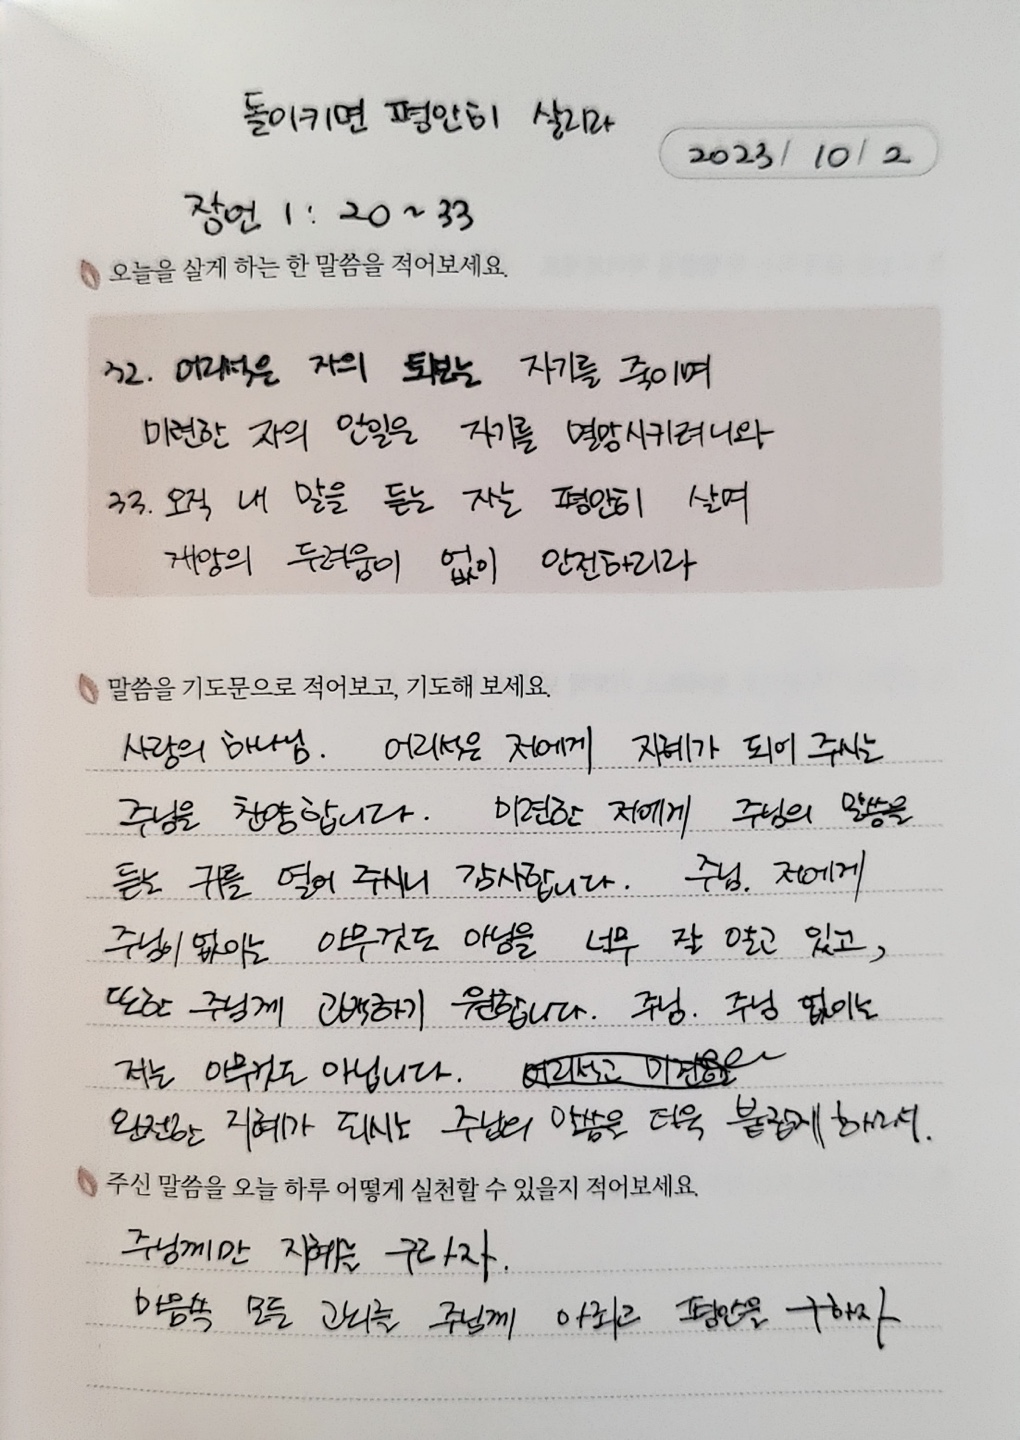 돌이키면 평안히 살리라
2023/ 10/ 2
잠언 1: 20~33
오늘을 살게 하는 한 말씀을 적어보세요.
32. 어리석은 자의 퇴보는 자기를 죽이며
미련한 자의 안일은 자기를 멸망시키려니와
33. 오직 내 말을 듣는 자는 평안히 살며
재앙의 두려움이 없이 안전하리라
말씀을 기도문으로 적어보고, 기도해 보세요.
사랑의 하나님. 어리석은 저에게 지혜가 되어 주시는
주님을 찬양합니다. 미련한 저에게 주님의 말씀을
듣는 귀를 열어 주시니 감사합니다. 주님. 저에게
주님이 없이는 아무것도 아님을 너무 잘 알고 있고,
또한 주님께 고백하기 원합니다. 주님. 주님 없이는
저는 아무것도 아닙니다.
완전한 지혜가 되시는 주님의 말씀을 더욱 붙잡게 하소서.
주신 말씀을 오늘 하루 어떻게 실천할 수 있을지 적어보세요.
주님께만 지혜를 구하자.
마음속 모든 고뇌를 주님께 아뢰고 평안을 구하자